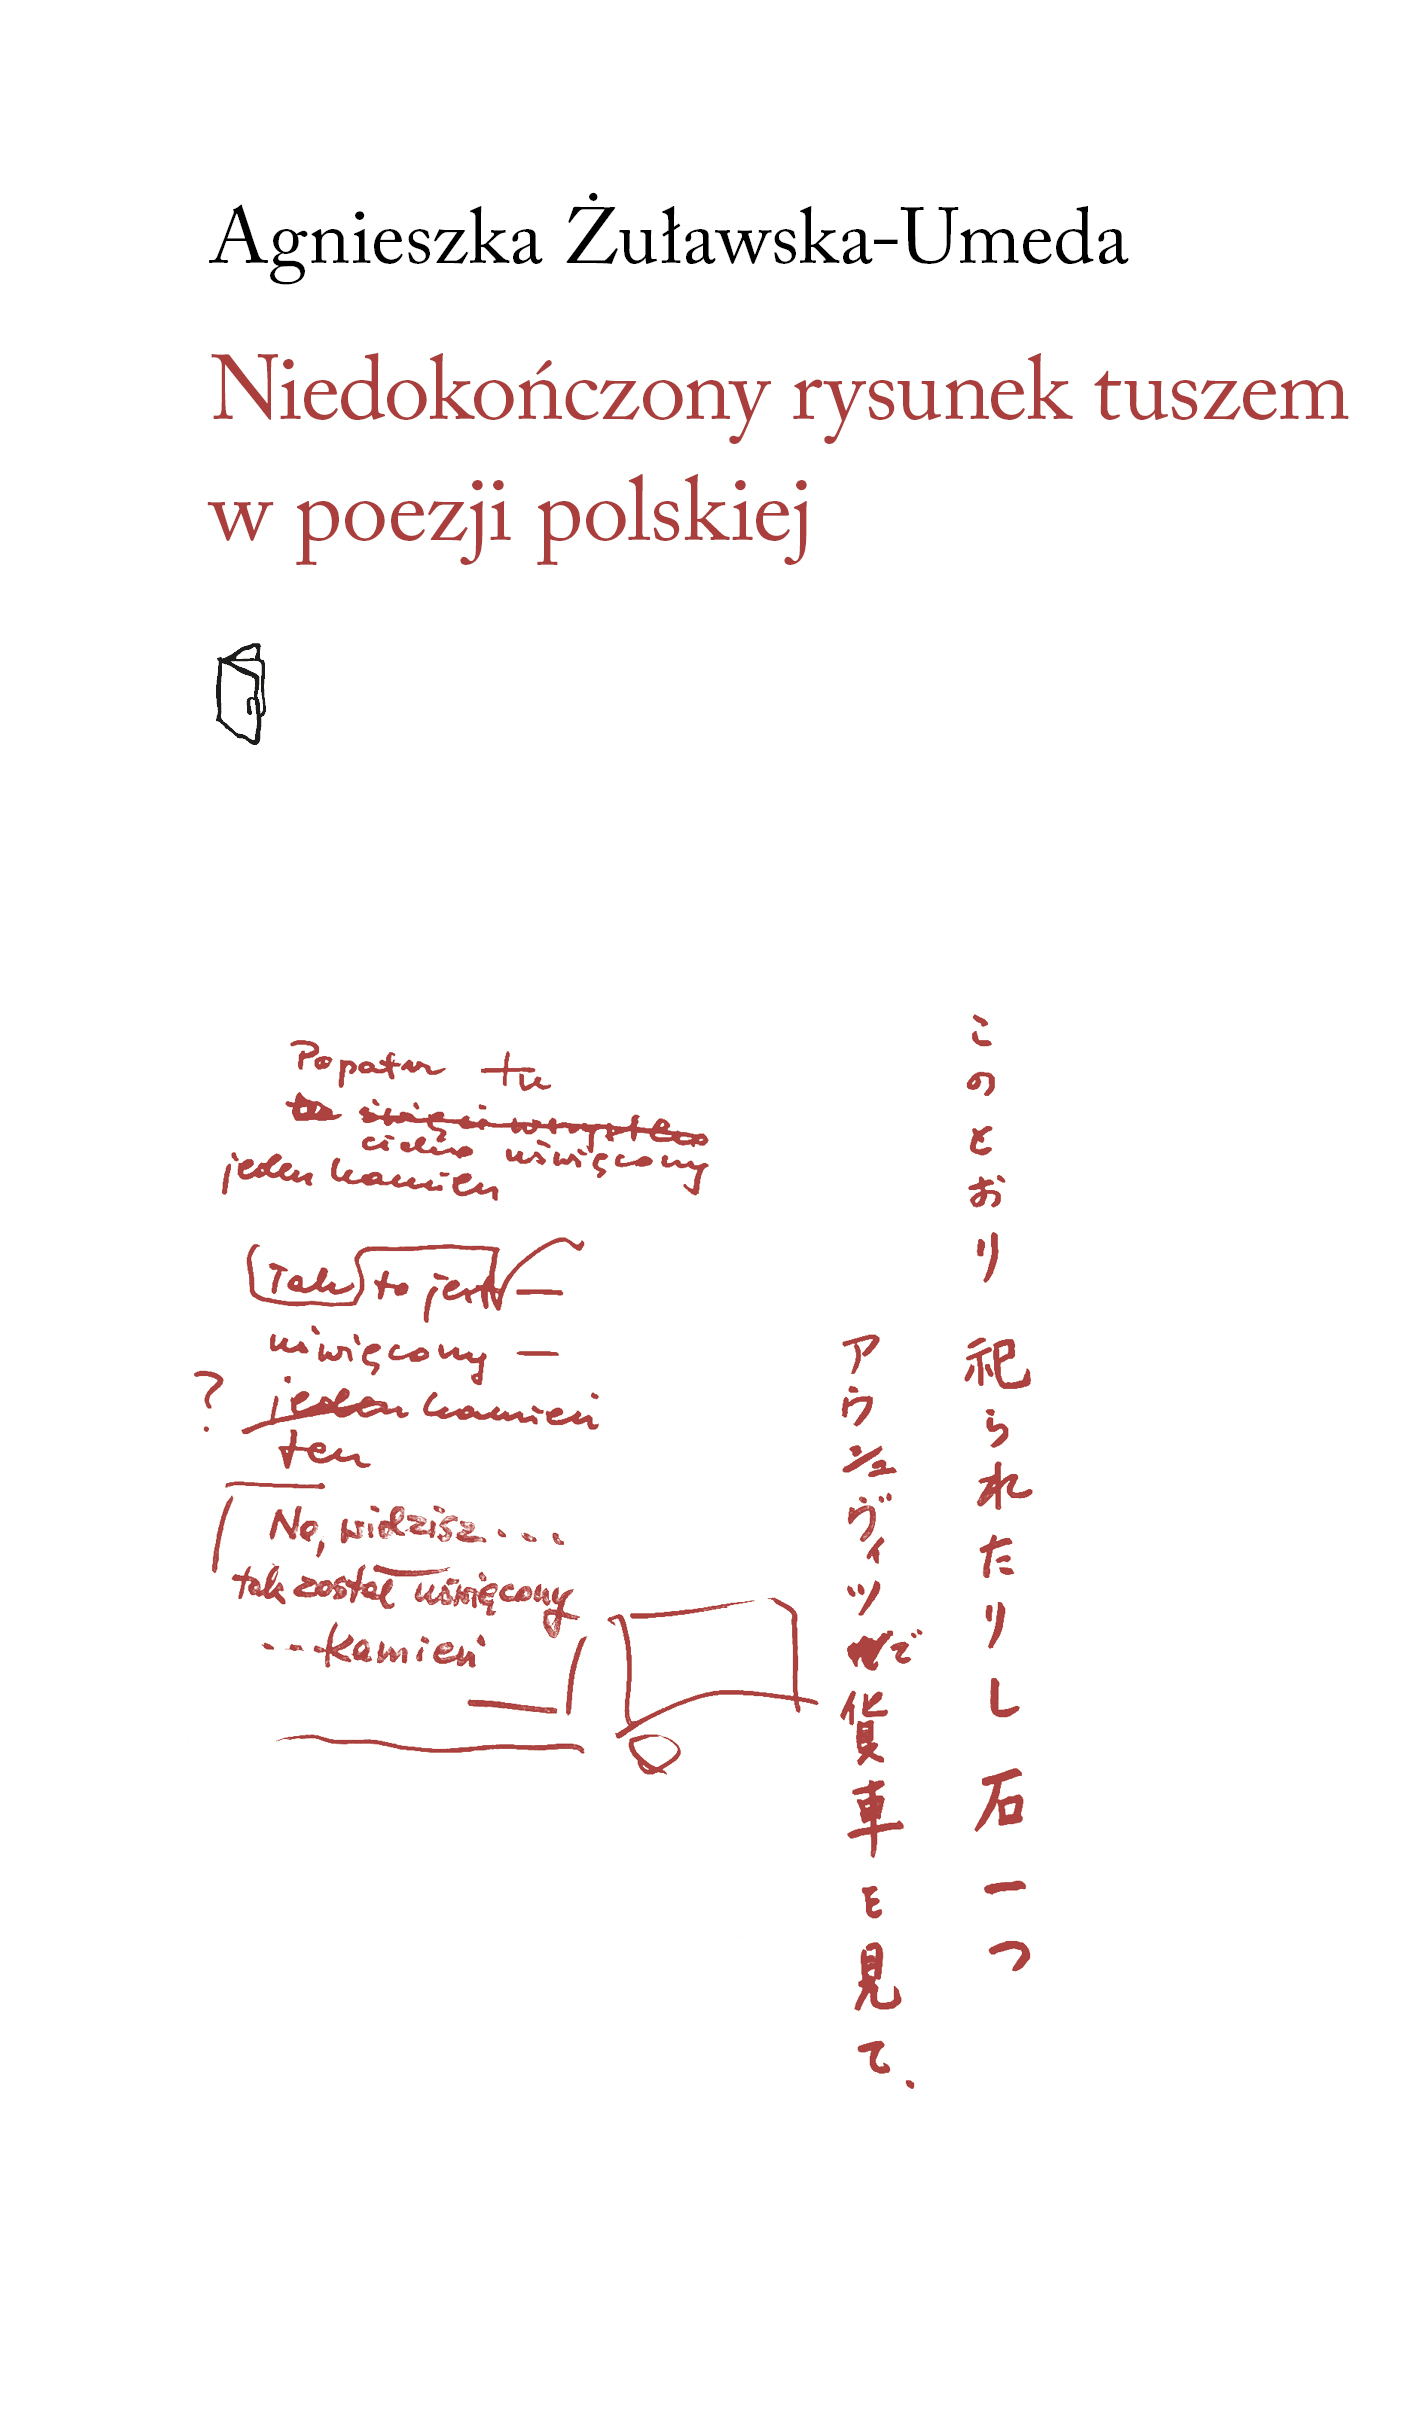 Agnieszka Żuławska-Umeda
Niedokończony rysunek tuszem
w poezji polskiej
Popatrz tu
to święci wszystko
cicho uświęcony
jeden kamień
Tak to jest —
uświęcony —
? jeden kamień
ten
No, widzisz...
tak został uświęcony
...kamień
このとおり 祀られたりし 石一つ
アウシュヴィツで貨車を見て.